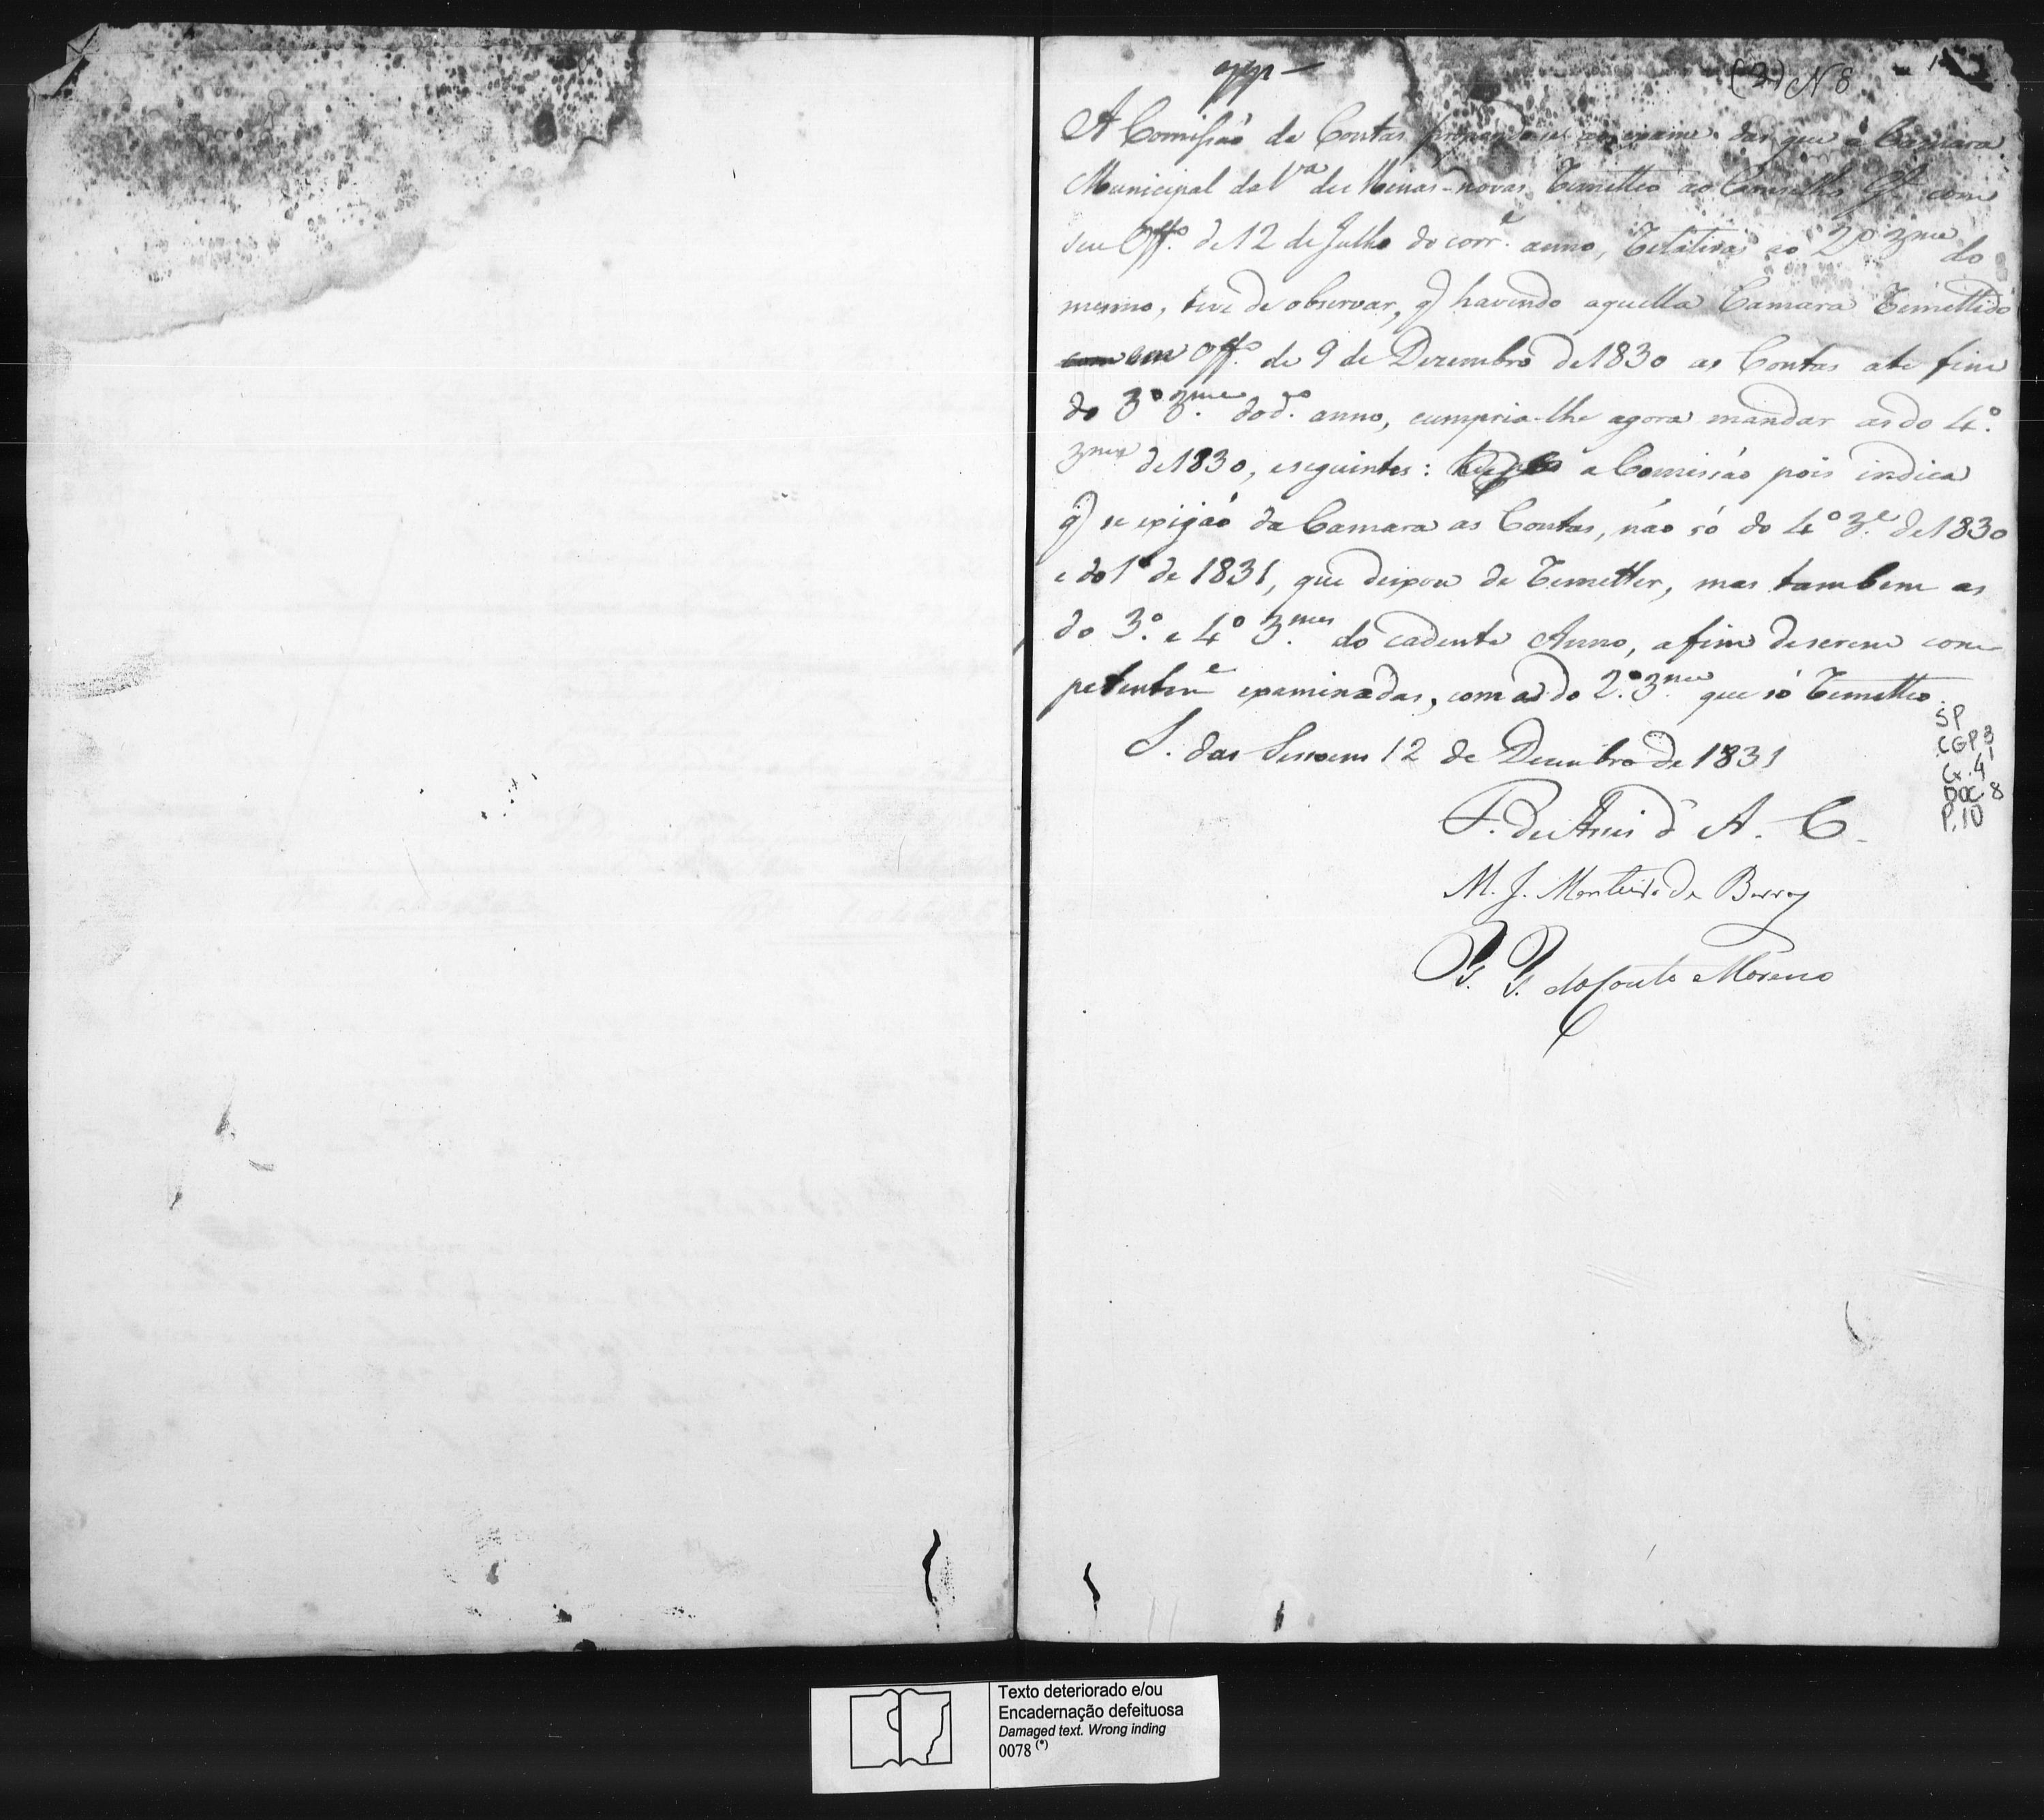 (2) N 8
A Comissaõ de Contas propondo-se ao exame das que a Camara
Municipal da Vᵃ de Minas-novas Remetteo ao Conselho Gᵃˡ com
seu Offº. de 12 de Julho do corrᵉ. anno, Relativas ao 2º 3ᵐᵉ do
mesmo, teve de observar, q' havendo aquella Camara Remettido
em Offº. de 9 de Dezembro de 1830 as Contas ate fim
do 3º 3.ᵐᵉ do dº. anno, cumpria-lhe agora mandar as do 4º.
3ᵐᵉ de 1830, e seguintes: a Comissaõ pois indica
q' se exigaõ da Camara as Contas, naõ só do 4º 3.ᵉ de 1830
e do 1º de 1831, que deixou de Remetter, mas tambem as
do 3º. e 4º 3.ᵐᵉˢ do cadente Anno, a fim de serem com-
petentemᵉ examinadas, com as do 2.º 3.ᵐᵉ que só Remetteo.
S. das Sessoens 12 de Dezembro de 1831
F. de Assis d' A. C.
M. J. Monteiro de Barros
P. P. do Couto Moreno
SP
CGP 3
Cx. 41
DOC 8
P. 10
Texto deteriorado e/ou
Encadernação defeituosa
Damaged text. Wrong inding
0078 (*)